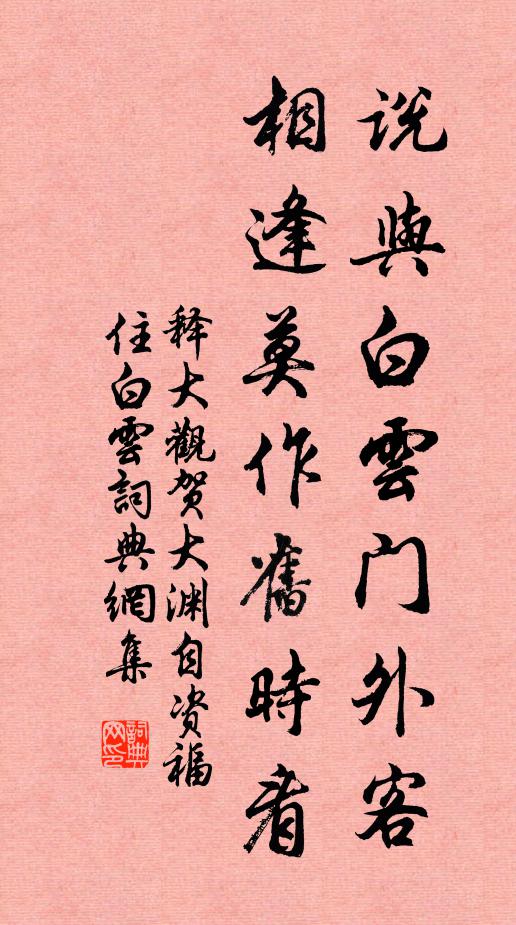 说與白雲门外客
相逢莫作舊時看
释大觀贺大渊自资福
住白雲詞典網集
詞典网印